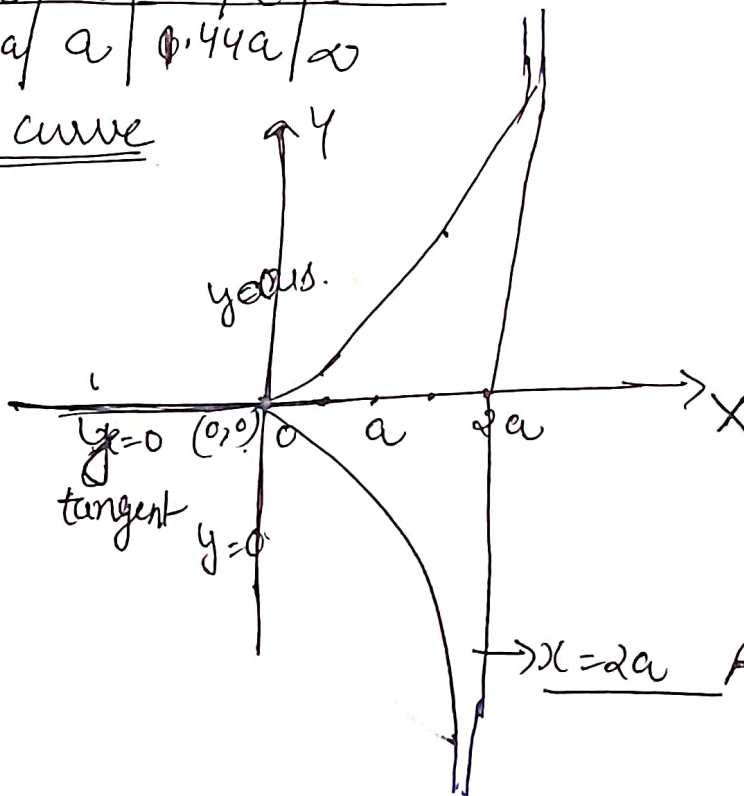 a | a | 0.44a | ∞
curve
Y
X
y=0 (0,0) 0 a 2a
tangent
y=0
→ x=2a